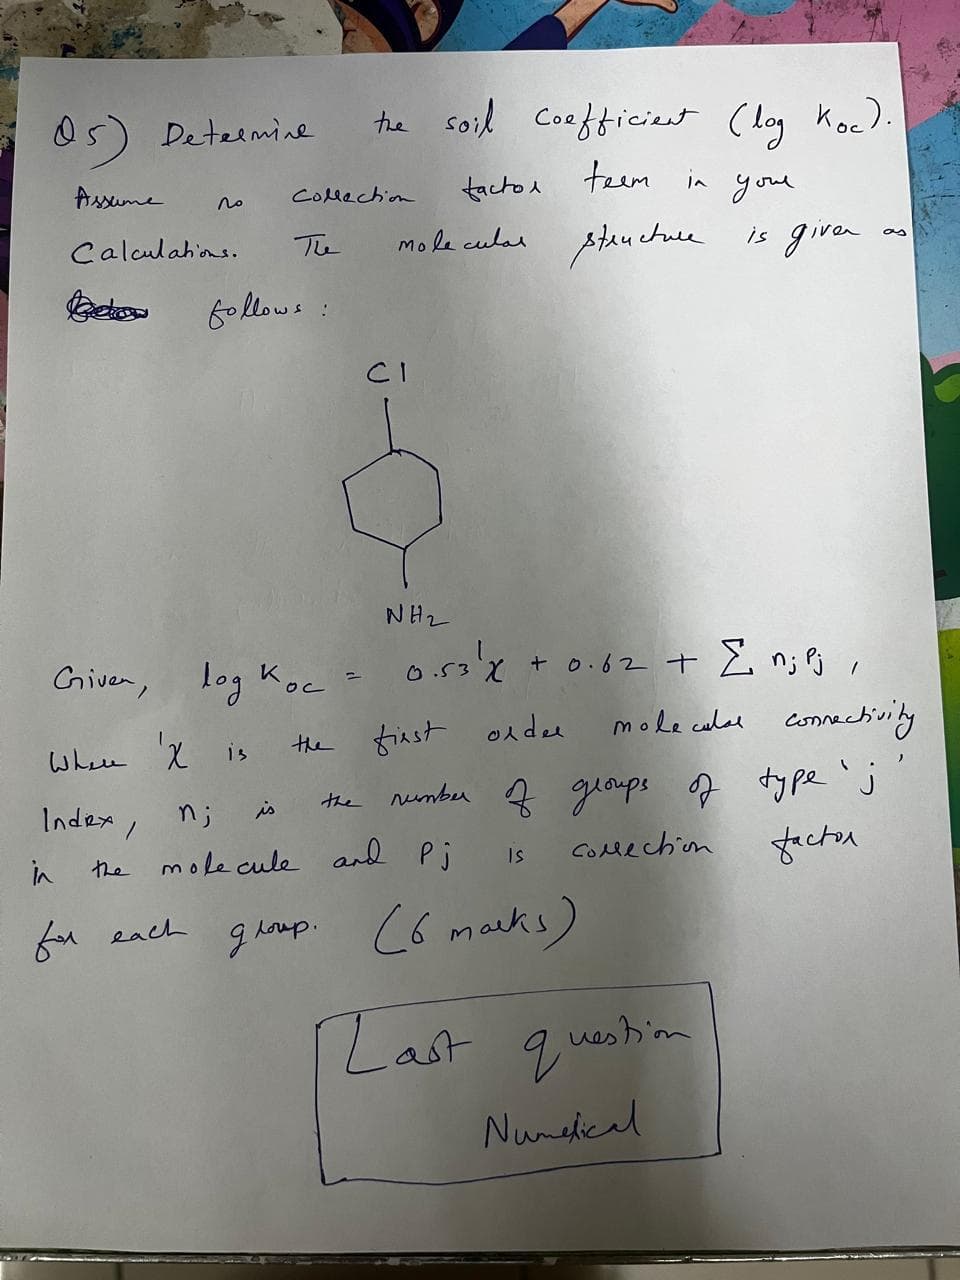 Q5) Determine the soil coefficient (log Koc).
Assume no correction factor term in your
Calculations. The molecular structure is given as
follows :
Cl
NH2
Given, log Koc = 0.53 ¹χ + 0.62 + Σ nj Pj ,
Where ¹χ is the first order molecular connectivity
Index, nj is the number of groups of type 'j'
in the molecule and Pj is correction factor
for each group. (6 marks)
Last question
Numerical